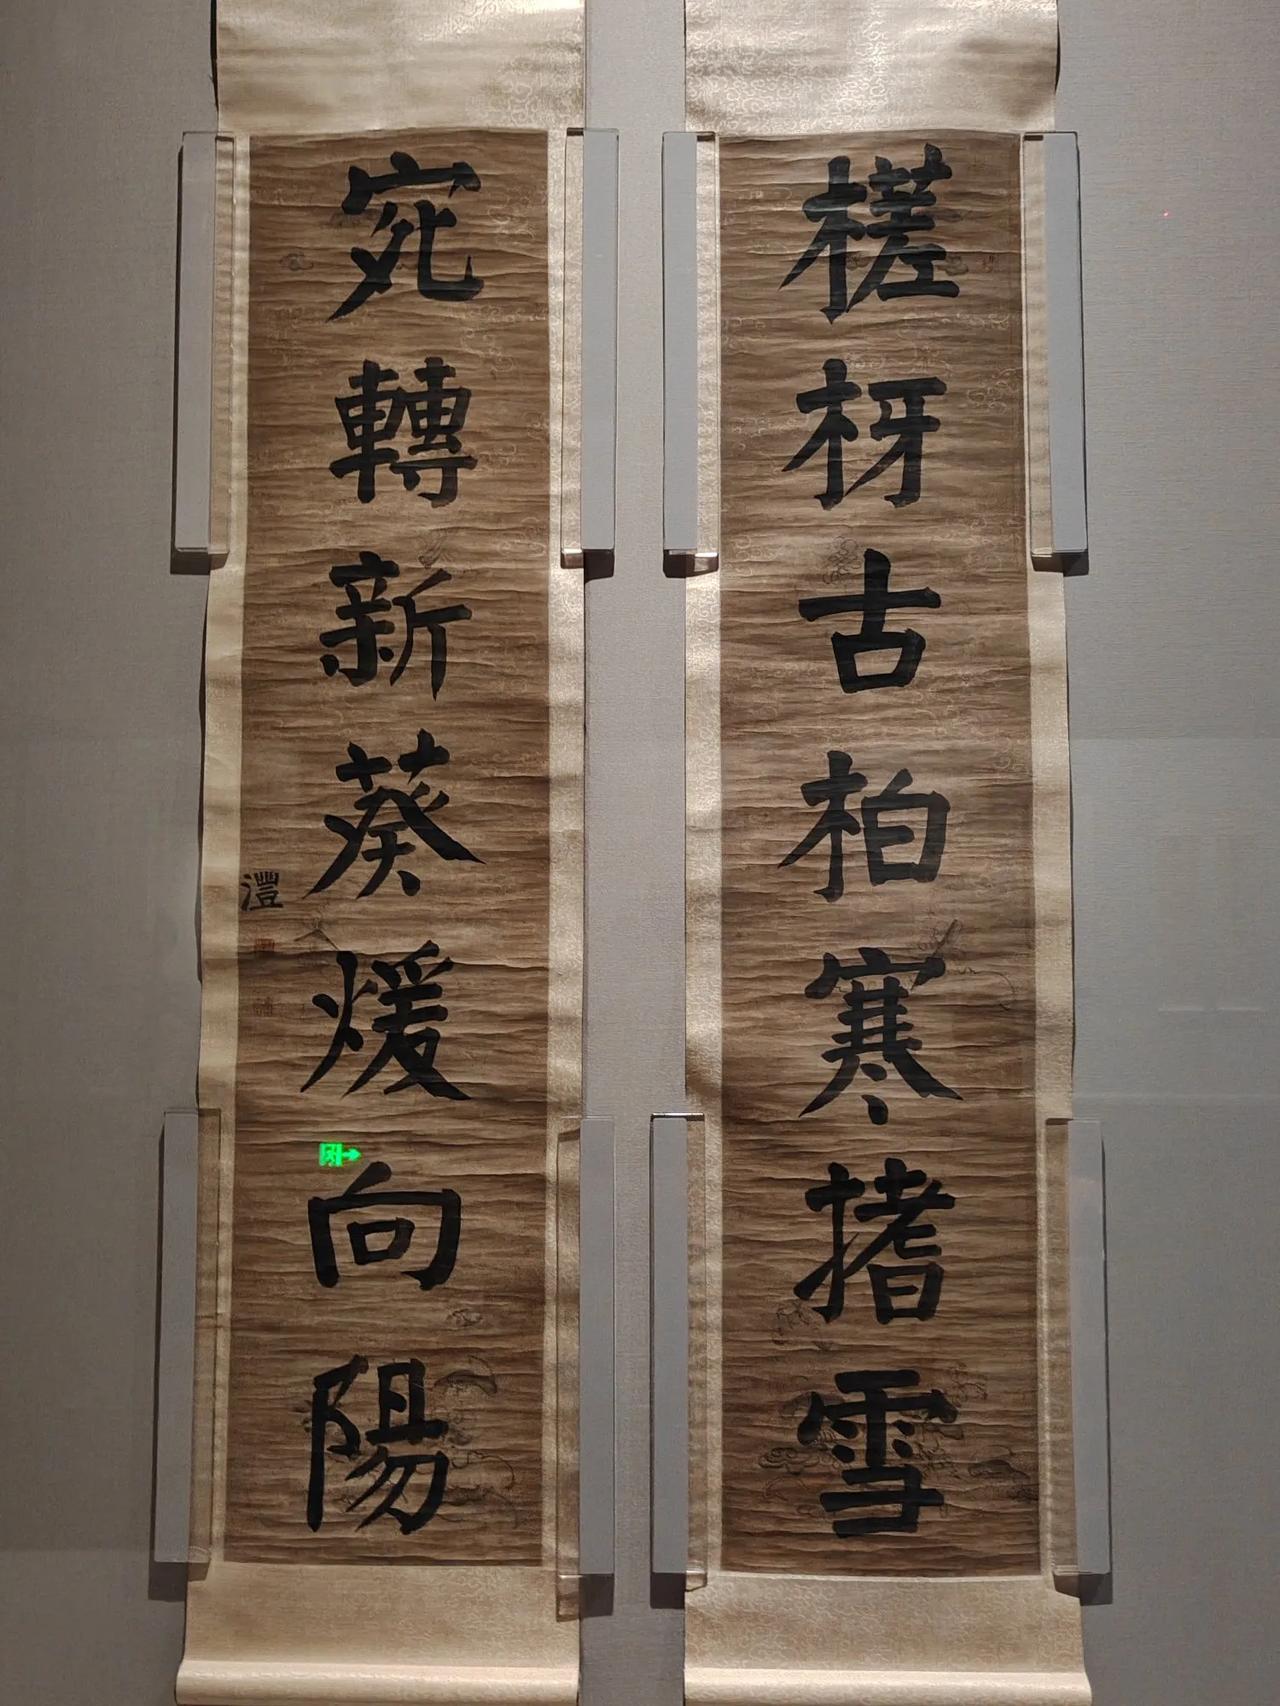 槎枒古柏寒揩雪
宛轉新葵煖向陽
澧